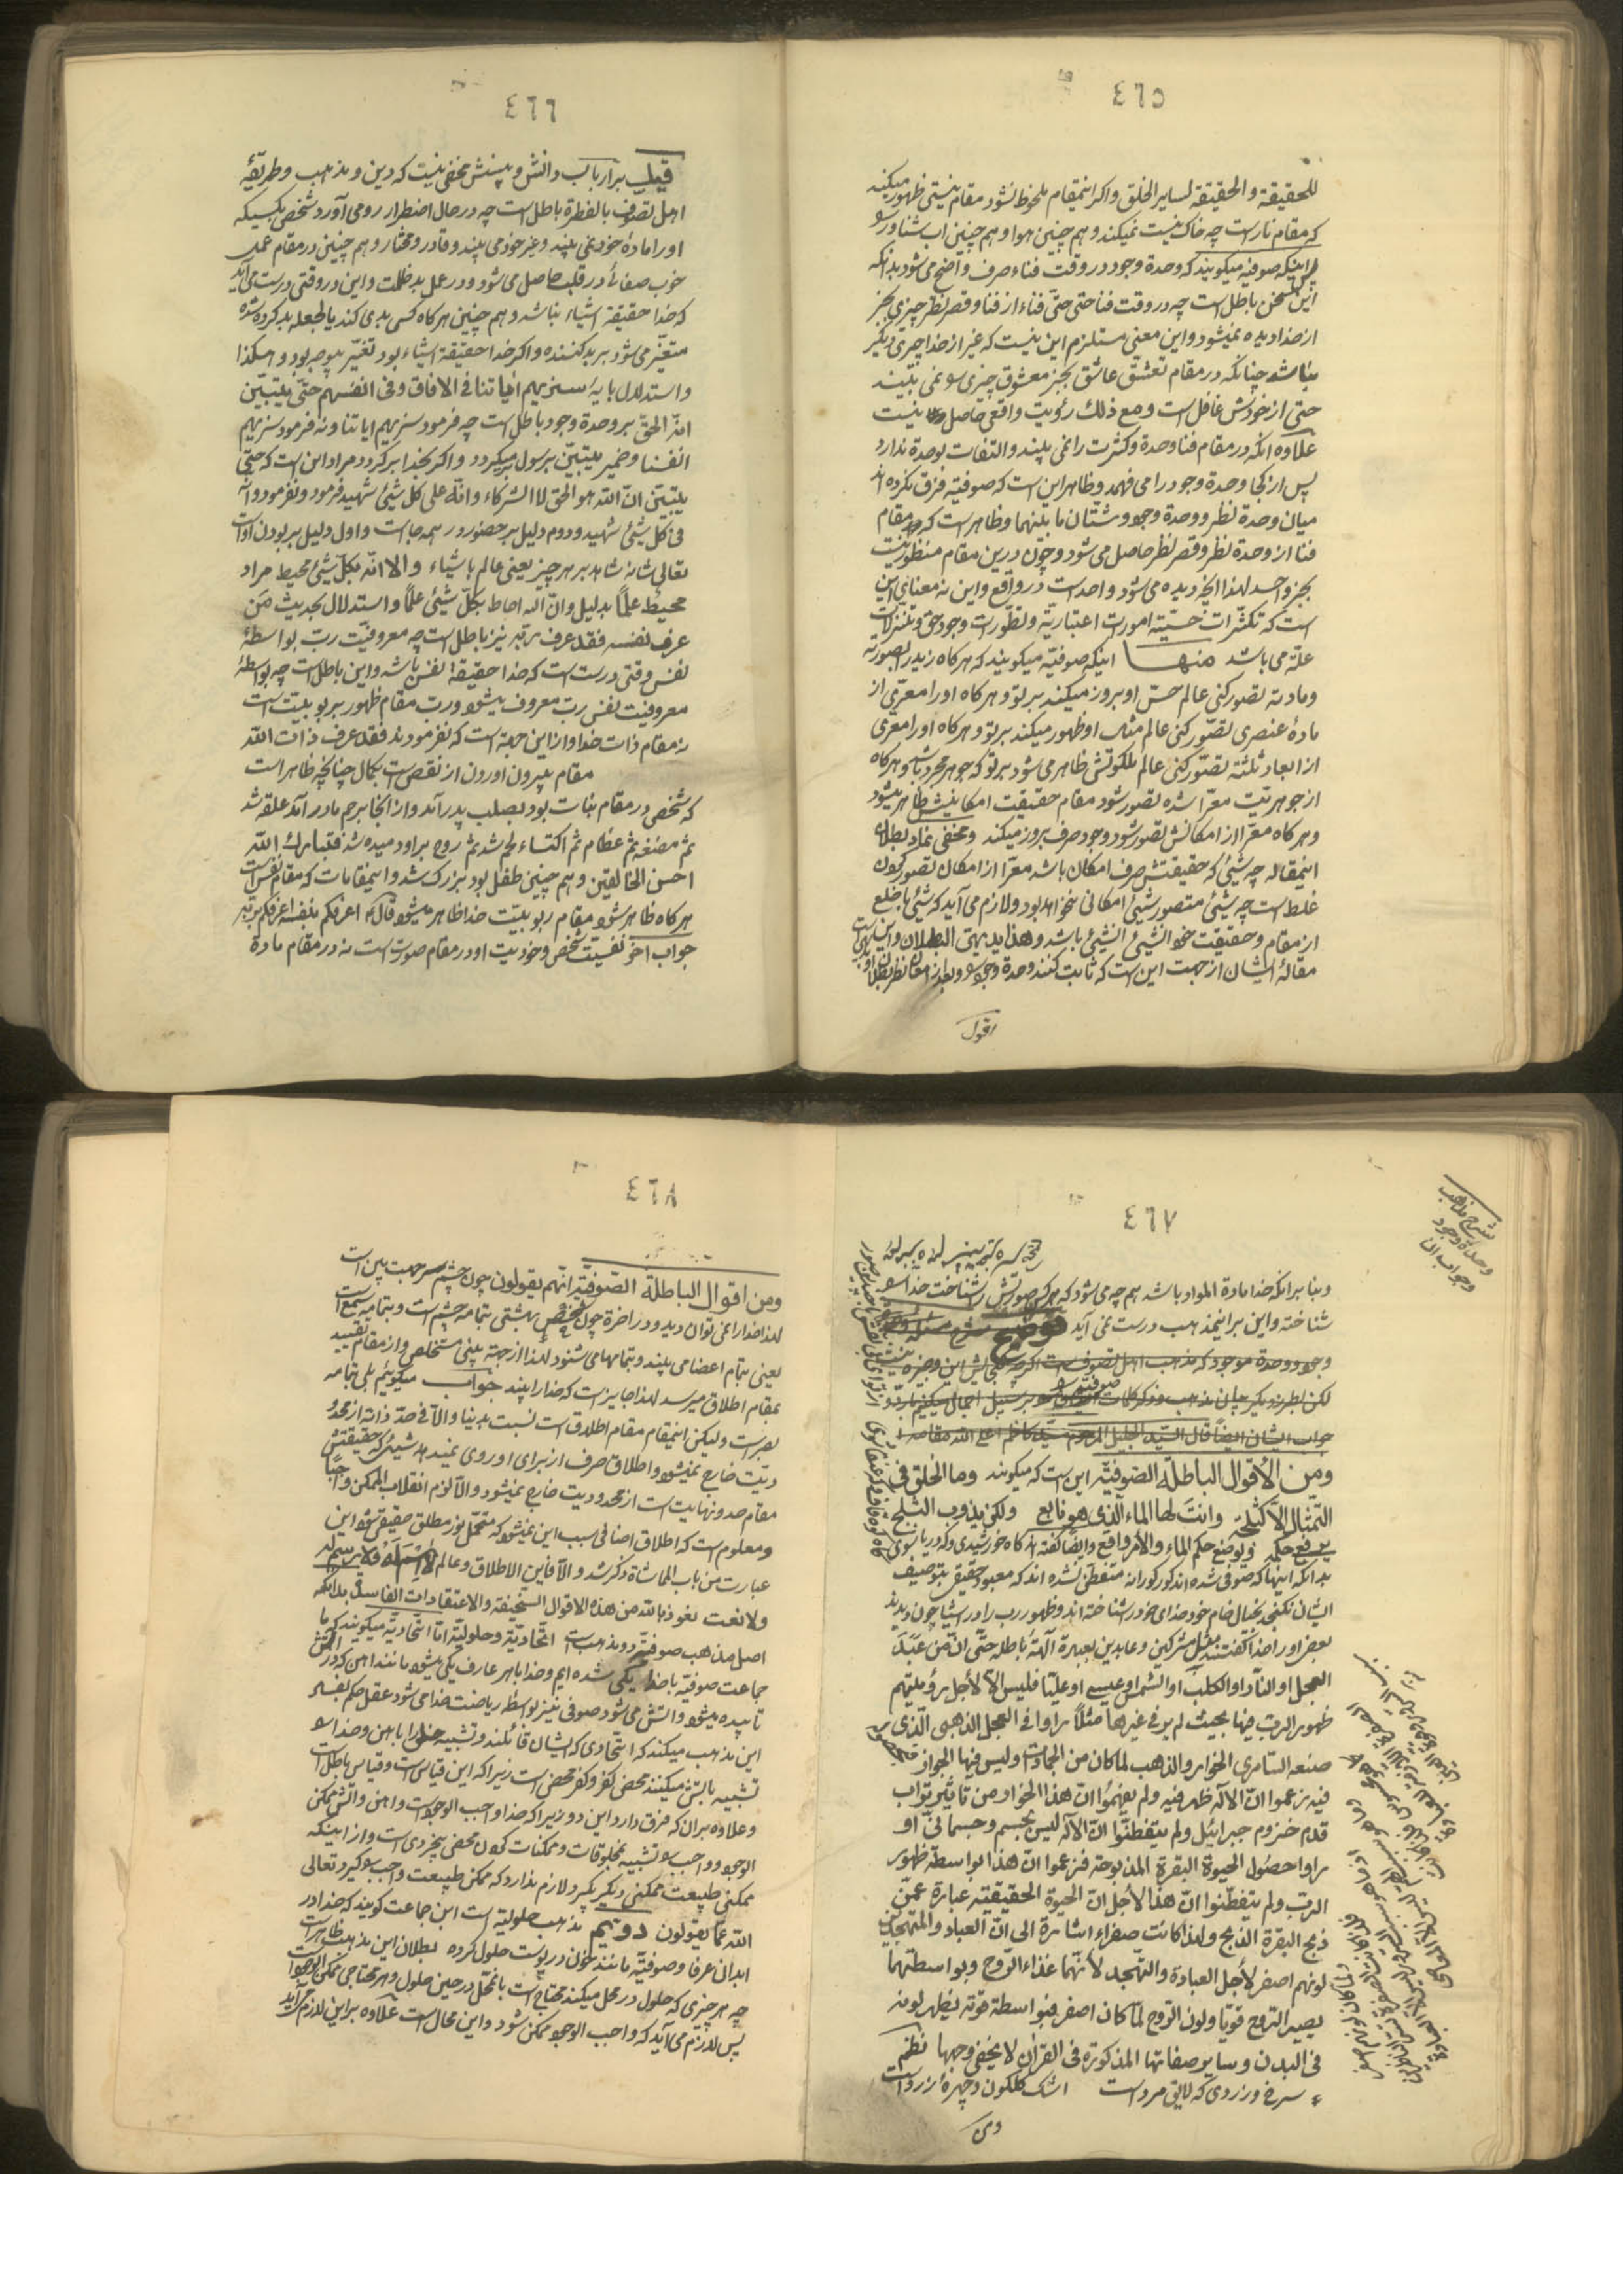 ٤٦٥
للحقیقة والحقیقة لسایر الخلق واکر اینمقام ملحوظ نشود مقام نیستی ظهور میکند
که مقام نار است چه خاک نیست نمیکند وهم چنین هوا وهم چنین اب شناور
اینکه صوفیه میکویند که وحدة وجود در وقت فناء صرف واضح می شود بدانکه
این سخن باطل است چه در وقت فنا حتی حتّی فناء از فنا وقصر نظر چیزی بجز
از خدا دیده نمیشود واین معنی مستلزم این نیست که غیر از خدا چیزی دیکر
نباشد چنانکه در مقام تعشق عاشق بجز معشوق چیزی نمی بیند
حتی از خودش غافل است ومع ذلك رؤیت واقعی حاصل نیست
علاوه انکه در مقام فنا وحدة وکثرت را نمی بیند والتفات بوحدة ندارد
پس از کجا وحدة وجود را می فهمد وظاهر این است که صوفیه فرق نکرده اند
میان وحدة نظر ووحدة وجود وشتّان ما بینهما وظاهر است که در مقام
فنا از وحدة نظر وقصر نظر حاصل می شود وچون درین مقام منظور نیست
بجز واحد لهذا انچه دیده می شود واحد است در واقع واین نه معنای این
است که تکثّرات حسّیّه امورات اعتباریّه وتطوّرات وجود حق وتنزلات
علّة می باشد منها اینکه صوفیّه میکویند که هرکاه زید را بصورته
ومادته تصور کنی عالم حسّ او بروز میکند بر تو وهرکاه او را معرّی از
مادهٔ عنصری تصوّر کنی عالم مثال او ظهور میکند بر تو وهرکاه او را معری
از ابعاد ثلثه تصوّر کنی عالم ملکوتش ظاهر می شود بر تو که جوهر مجرد باشد وهرکاه
از جوهریّت معرّا شده تصور شود مقام حقیقت امکانیش ظاهر میشود
وهرکاه معرّا از امکانش تصور شود وجود صرف بروز میکند ومخفی نماد بطلان
اینمقاله چه شیئی که حقیقتش صرف امکان باشد معرّا از امکان تصور کردن
غلط است چه شیئی متصور شیئی امکانی خواهد بود ولازم می آید که شیئ با خلع
از مقام وحقیقت خود الشیئ الشیئ باشد وهذا بدیهی البطلان واین
مقالهٔ ایشان از جهت این است که ثابت کنند وحدة وجود
اقول
٤٦٦
قیل بر ارباب دانش وبینش مخفی نیست که دین ومذهب وطریقهٔ
اهل تصوف بالفطرة باطل است چه در حال اضطرار رو می آورد شخص بکسیکه
او را مادهٔ خود نمی بیند وغیر خود می بیند وقادر ومختار وهم چنین در مقام عمل
خوب صفائی در قلب حاصل می شود ودر عمل بد ظلمت واین در وقتی درست می آید
که خدا حقیقة اشیاء نباشد وهم چنین هرکاه کسی بدی کند بالجعله بد کرده شده
متغیّر می شود بر بد کننده واکر خدا حقیقة اشیاء بود تغیّر بی وجه بود وهکذا
واستدلال بایهٔ سنریهم ایاتنا فی الافاق وفی انفسهم حتّی یتبیّن
انّه الحقّ بر وحدة وجود باطل است چه فرمود سنریهم ایاتنا ونه فرمود سنریهم
انفسنا وضمیر یتبیّن برسول برمیکردد واکر بخدا برکردد مراد این است که حتّی
یتبیّن انّ الله هو الحق لا الشرکاء وانّه علی کل شیئ شهید فرمود ونفرمود وانّه
فی کل شیئ شهید ودوم دلیل بر حضور در همه جا است واول دلیل بر بودن او است
تعالی شانه شاهد بر هر چیز یعنی عالم باشیاء والا انّه بکلّ شیئ محیط مراد
محیط علماً بدلیل وانّ الله احاط بکلّ شیئی علماً واستدلال بحدیث مَن
عرف نفسه فقد عرف ربّه نیز باطل است چه معروفیّت ربّ بواسطهٔ
نفس وقتی درست است که خدا حقیقة نفس باشد واین باطل است چه بواسطهٔ
معروفیت نفس ربّ معروف میشود ورب مقام ظهور بربوبیّت است
نه مقام ذات خدا واز این جهة است که نفرمودند فقد عرف ذات الله
مقام بیرون اوردن از نقص است بکمال چنانچه ظاهر است
که شخص در مقام نبات بود بصلب پدر آمد واز انجا برحم مادر آمد علقه شد
ثم مضغه ثم عظام ثم اکتساء لحم شد ثم روح بر او دمیده شد فتبارك الله
احسن الخالقین وهم چنین طفل بود بزرک شد واینمقامات که مقام نفس است
هرکاه ظاهر شود مقام ربوبیّت خدا ظاهر میشود قال اعرفکم بنفسه اعرفکم بربه
جواب اخر نفسیّت شخص وخودیت او در مقام صورت است نه در مقام مادة
٤٦٧
شرح مذهب
وحدة وجود
وجواب ان
وبنا بر انکه خدا مادة المواد باشد هم چه می شود که هرکس صورتش را شناخت خدا
شناخته واین بر اینمذهب درست نمی آید توضیح
وجود ووحدة موجود که مذهب اهل تصوف است اکرچه
لکن بطرز دیکر بیان مذهب وذکر کلمات صوفیه بر سبیل اجمال میکنیم
جواب ایشان ایضاً قال السیّد الجلیل المرحوم سیّد کاظم اعلی الله مقامه
ومن الأقوال الباطلة الصّوفیّه این است که میکویند وما الخلق فی
التمثال الا کثلجة وانت لها الماء الّذی هو نابع ولکن یذوب الثلج
یرفع حکمه ویوضع حکم الماء والأمر واقع وایضاً کفته اند کاه خورشیدی وکه دریا شوی
بدانکه اینها که صوفی شده اند کورکورانه متفطّن نشده اند که معبود حقیقی بتوصیف
ایشان نکنجد بخیال خام خود خدای خود را شناخته اند وظهور رب را در اشیا چون دیدند
بعض او را خدا کفتند مثل مشرکین وعابدین بعبدة آلهة باطله حتّی انّ من عَبَدَ
العجل او النّار او الکلب او الشمس او عیسی او علیّا فلیس الّا لأجل رؤیتهم
ظهور الرب فیها بحیث لم یر فی غیرها مثلاً راوا فی العجل الذهبی الّذی
صنعه السّامری الخوار والذهب لما کان من الجمادات ولیس فیها الخوار
فیه زعموا انّ الاله ظهر فیه ولم یفهموا انّ هذا الخوار من تاثیر تراب
قدم حیزوم جبرائیل ولم یتفطّنوا انّ الاله لیس بجسم وجسمانیّ او
راوا حصُول الحیوة البقرة المذبوحة فزعموا انّ هذا بواسطة ظهور
الربّ ولم یتفطّنوا انّ هذا لأجل انّ الحیوة الحقیقیّه عبارة عمّن
ذبح البقرة الذبح ولهذا کانت صفراء اشارة الی انّ العباد والمتهجّدین
لونهم اصفر لأجل العبادة والتهجّد لأنّهما غذاء الرّوح وبواسطتهما
یصیر الرّوح قویّا ولون الرّوح لمّا کان اصفر فبواسطة قوّته یظهر لونه
فی البدن وسایر صفاتها المذکورة فی القرآن لا یخفی وجهها نظم
سرخ وزردی که لایق مرد است اشک کلکون وچهرهٔ زرد است
ومن
٤٦٨
ومن اقوال الباطلة الصّوفیّه انّهم یقولون چون چشم سر جهت بین است
لهذا خدا را نمی توان دید ودر اخرة چون شخص بهشتی بتمامه چشم است وبتمامه سمع است
یعنی بتمام اعضا می بیند وبتمامها می شنود لهذا از جهة بینی مستخلص واز مقام تقیید
بمقام اطلاق میرسد لهذا جایز است که خدا را بیند جواب میکوئیم بلی بتمامه
بصر است ولیکن اینمقام مقام اطلاق است نسبت بدنیا والّا فی حدّ ذاته از محدو
دیّت خارج نمیشود واطلاق صرف از برای او روی نمیدهد شیئی که حقیقتش
مقام حد ونهایت است از محدودیت خارج نمیشود والّا لزم انقلاب الممکن واجباً
ومعلوم است که اطلاق اضافی سبب این نمیشود که متحمّل نور مطلق حقیقی شود این
عبارت من باب المماشاة ذکر شد والّا فاین الاطلاق وعالم لا اسم له ولا رسم له
ولا نعت نعوذ بالله من هذه الاقوال السّخیفة والاعتقادات الفاسدة بدانکه
اصل مذهب صوفیّه دو مذهب است اتحادیّة وحلولیّة امّا اتّحادیّه میکویند که ما
جماعت صوفیّه با خدا یکی شده ایم وخدا با هر عارف یکی میشود مانند اهن که در اتش
تابیده میشود واتش می شود صوفی نیز بواسطهٔ ریاضت خدا می شود عقل حکم بفساد
این مذهب میکند که اتحادی که ایشان قائلند وتشبیه خدا را باهن وخدا
تشبیه باتش میکنند محض کفر وکفر محض است زیرا که این قیاس است وقیاس باطل است
وعلاوه بر ان که فرق دارد این دو زیرا که خدا واجب الوجود است واهن واتش ممکن
الوجود وواجب تشبیه بمخلوقات وممکنات کردن محض بیخردی است واز اینکه
ممکنی طبیعت ممکنی دیکر بکیرد لازم ندارد که ممکن طبیعت واجب کیرد تعالی
الله عمّا یقولون دویم مذهب حلولیّه است این جماعت کویند که خدا در
ابدان عرفا وصوفیّه مانند خون در پوست حلول کرده بطلان این مذهب ظاهر است
چه هر چیزی که حلول در محل میکند محتاج است بانمحلّ در حین حلول وهر محتاجی ممکن الوجود است
پس لازم می آید که واجب الوجود ممکن شود واین محال است علاوه بر این لازم می آید